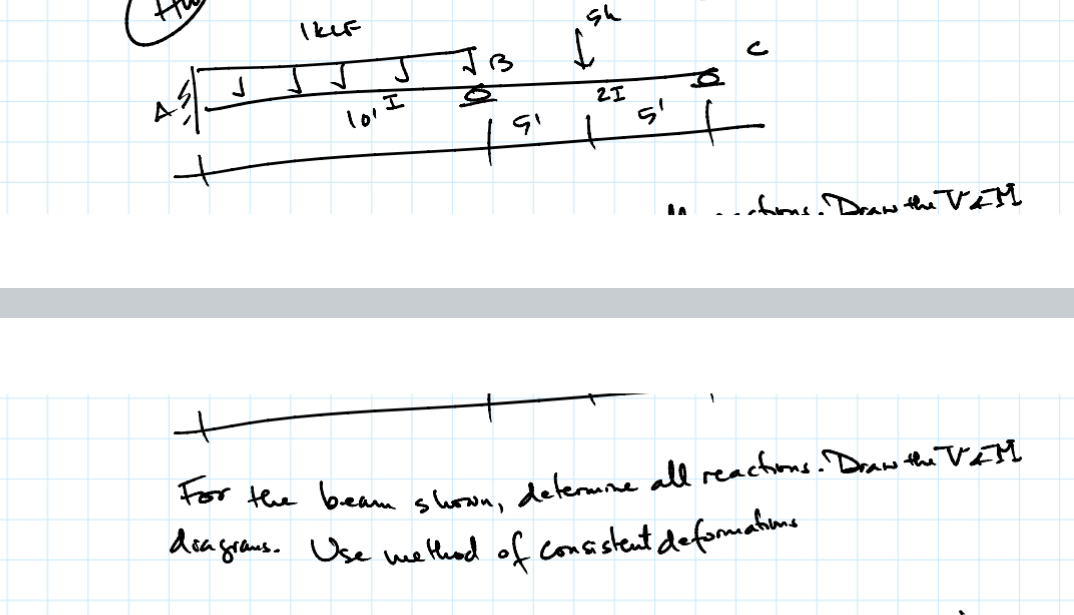 1KLF
5k
C
B
A
10' I
2I
5'
5'
reactions. Draw the V & M
For the beam shown, determine all reactions. Draw the V & M
diagrams. Use method of consistent deformations